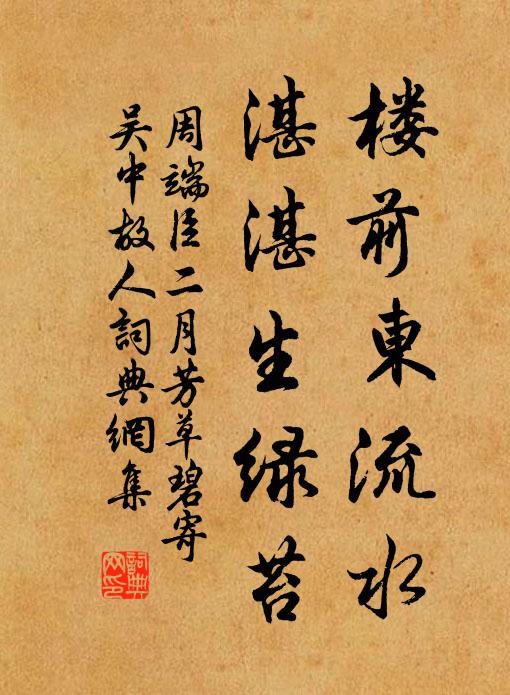 楼前東流水
湛湛生緑苔
周端臣二月芳草碧寄
吴中故人詞典網集
詞典
网印